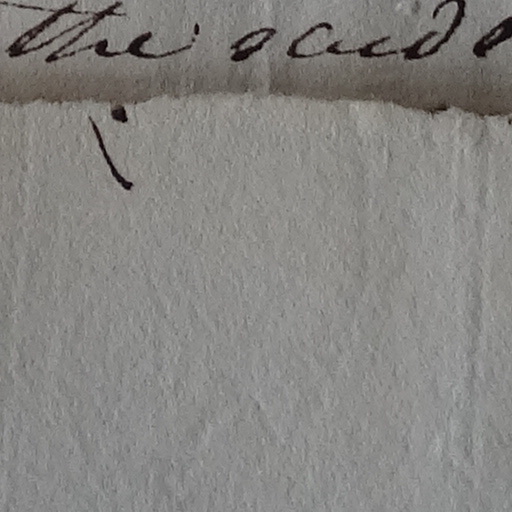 the said